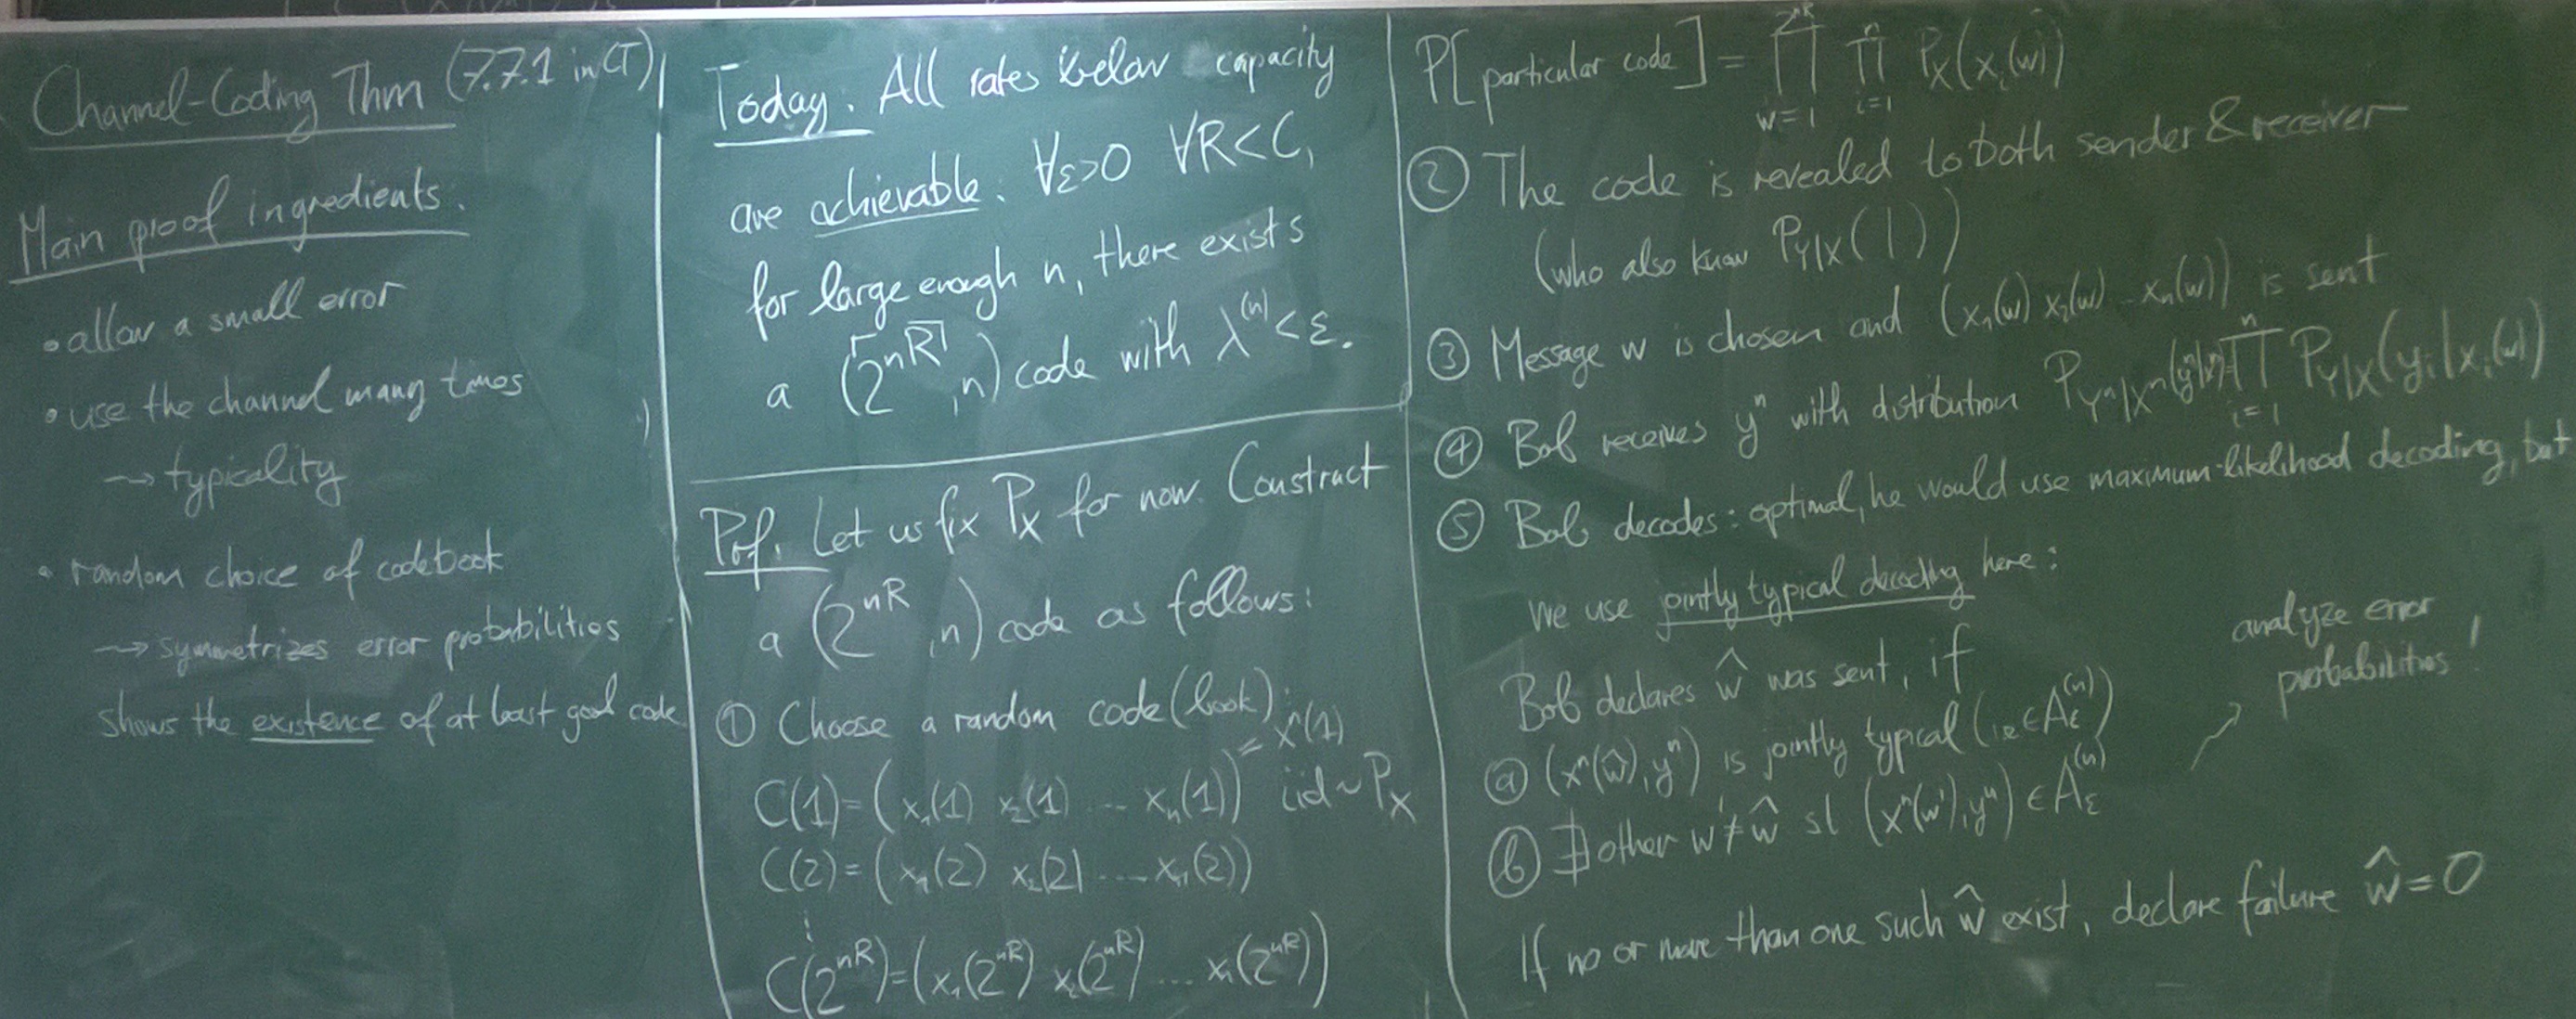 Channel-Coding Thm (7.7.1 in CT)
Main proof ingredients:
• allow a small error
• use the channel many times
→ typicality
• random choice of codebook
→ symmetrizes error probabilities
shows the existence of at least good code
Today: All rates below capacity
are achievable: ∀ε>0 ∀R<C,
for large enough n, there exists
a (2^⌈nR⌉, n) code with λ^(n) < ε.
Prf: Let us fix P_X for now. Construct
a (2^nR, n) code as follows:
① Choose a random code(book):
C(1) = (x₁(1) x₂(1) ... xₙ(1)) = xⁿ(1) iid ~ P_X
C(2) = (x₁(2) x₂(2) ... xₙ(2))
⋮
C(2^nR) = (x₁(2^nR) x₂(2^nR) ... xₙ(2^nR))
P[particular code] = ∏_{w=1}^{2^nR} ∏_{i=1}^{n} P_X(x_i(w))
② The code is revealed to both sender & receiver
(who also know P_{Y|X}( | ))
③ Message w is chosen and (x₁(w) x₂(w) ... xₙ(w)) is sent
④ Bob receives yⁿ with distribution P_{Yⁿ|Xⁿ}(yⁿ|xⁿ) = ∏_{i=1}^{n} P_{Y|X}(y_i|x_i(w))
⑤ Bob decodes: optimal, he would use maximum-likelihood decoding, but
we use jointly typical decoding here:
Bob declares ŵ was sent, if
ⓐ (xⁿ(ŵ), yⁿ) is jointly typical (i.e ∈ A_ε^(n))
ⓑ ∄ other w' ≠ ŵ st (xⁿ(w'), yⁿ) ∈ A_ε^(n)
If no or more than one such ŵ exist, declare failure ŵ = 0
↗ analyze error
probabilities!